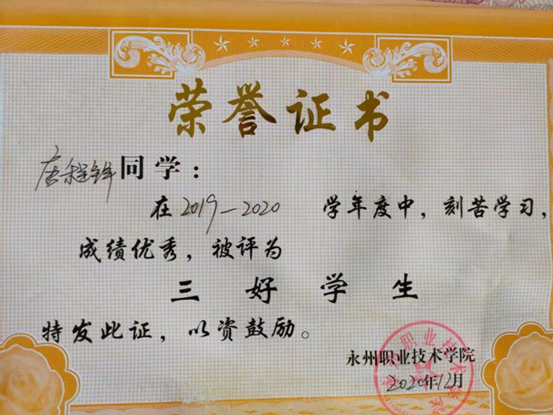 荣誉证书
唐程锋同学：
在2019—2020 学年度中，刻苦学习，
成绩优秀，被评为
三好学生
特发此证，以资鼓励。
永州职业技术学院
2020年12月